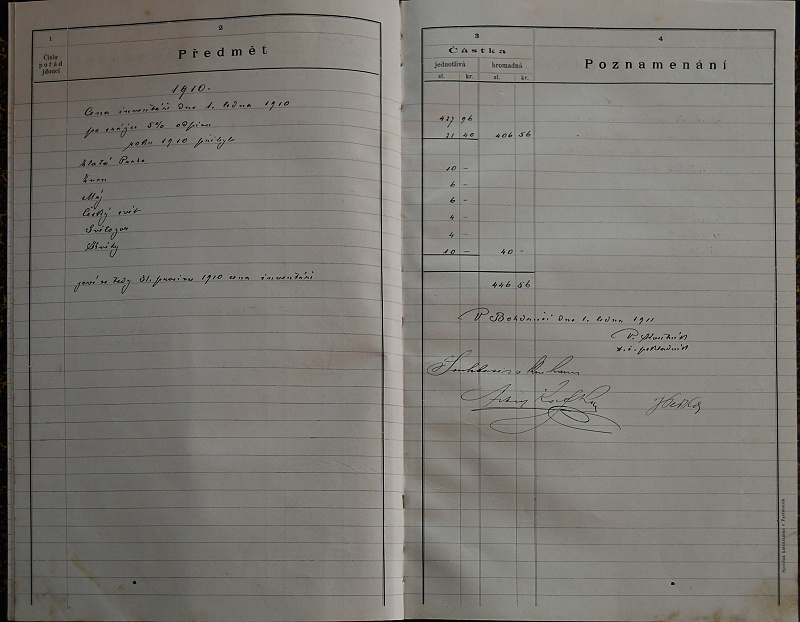 1
Číslo
pořád
jdoucí
2
Předmět
3
Částka
jednotlivá
hromadná
zl.
kr.
zl.
kr.
4
Poznamenání
1910.
Cena inventáře dne 1. ledna 1910
427 96
po srážce 5% odpisu
21 40 406 56
roku 1910 přibylo
Zlatá Praha
10 -
Zvon
6 -
Máj
6 -
Český svět
4 -
Světozor
4 -
10 - 40 -
jeví se tedy 31. prosince 1910 cena inventáře
446 56
V Bohdanči dne 1. ledna 1911
t. č. pokladník